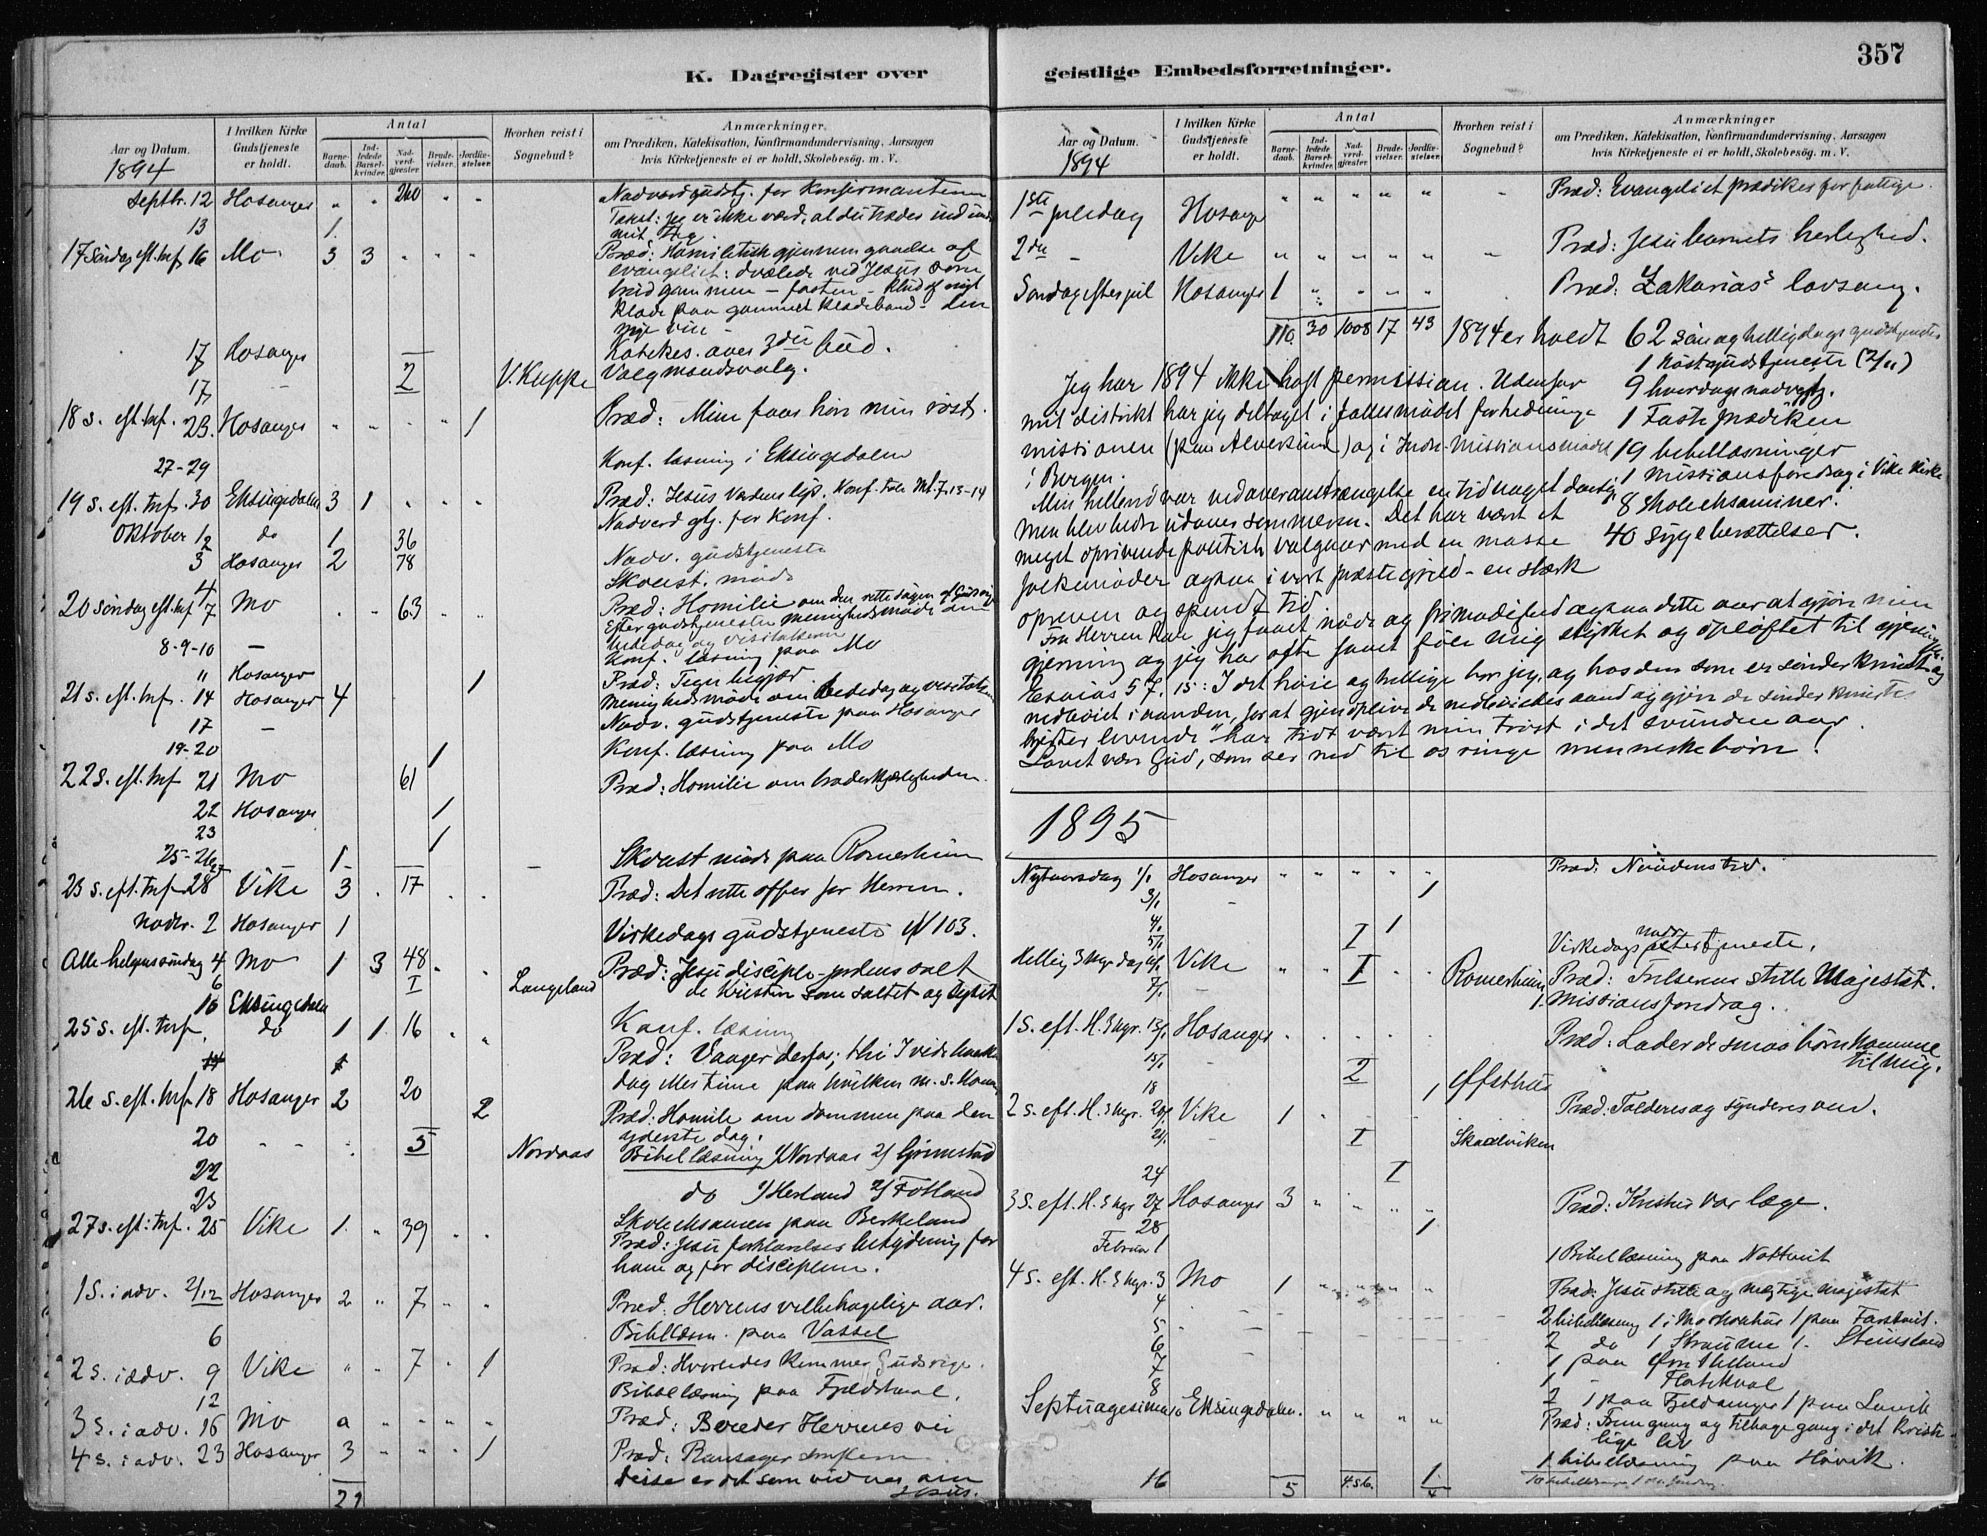 357
K. Dagregister over
Aar og Datum.
I hvilken Kirke Gudstjeneste er holdt.
Antal
Barnedaab.
Indledede Barselkvinder.
Nadverdgjester.
Brudevielser.
Jordfæstelser.
Hvorhen reist i Sognebud?
Anmærkninger.
om Prædiken, Katekisation, Konfirmandundervisning, Aarsagen
hvis Kirketjeneste ei er holdt, Skolebesög. m. V.
1894
Septbr. 12 Hosanger " " 240 " " Nadverdgudstj. for Konfirmanterne
Tekst: jeg er ikke værd, at du træder ind under
13 1. mit Tag.
17 Søndag eft. tref. 16 Mo 3 3 " " " Præd: Homiletisk gjennemgaaelse af
evangeliet: dvælede ved Jesus som
brudgommen – fasten –
klæde paa gammelt klædebond – den
nye vin
17 Hosanger Katekes. over 3die bud.
17 – 2 V. Kuppe Valgmandsvalg.
18 s. eft. tref. 23. Hosanger " " " " 1 Præd: Mine faar hør min røst.
27-29 Konf. læsning i Eksingedalen
19 s. eft. tref. 30 Eksingedalen 3 1 " " " Præd: Jesus Verdens lys. Konf. tale Mt. 7. 13-14
Oktober 1/2 do 1 36 Nadverd gtj. for Konf.
3 Hosanger 2 78 Nadv. gudstjeneste
4 Skolest. møde
20 Søndag eft. tref 7 Mo " " 63 " " Præd: Homilie om den rette dagen
Efter gudstjenesten menighedsmøde om
bededag og visitatsen
8-9-10 – Konf. læsning paa Mo
11 Hosanger 1
21 s. eft. tref. 14 Hosanger 4 Menighedsmøde om bededag og visitatsen
17 – Nadv. gudstjeneste paa Hosanger
19-20 1 Konf. læsning paa Mo
22 s. eft. tref 21 Mo 61 Præd: Homilie om broderkjærligheden.
22 Hosanger 1
23 1
25-26 1 – Skolest møde paa Romerheim
23 s. eft. tref 28 Vike 3 " 17 " " Præd: Det rette offer for Herren.
Novbr. 2 Hosanger 1 Virkedags gudstjeneste ψ 103.
Alle helgens søndag 4 Mo 1 3 48 " " Præd: Jesu disciple – jordens salt
6 I Langeland de Kristne som saltet og lyset
10 Eksingedalen Konf. læsning
25 s. eft. tref. do 1 1 16 " " Præd: Vaager derfor; thi I vide hverken
dag eller time paa hvilken m. s. kommer
26 s. eft. tref 18 Hosanger 2 20 2 Præd: Homilie om dommen paa den
yderste dag.
20 – – " 5 Nordaas Bibellæsning 1/ Nordaas 2/ Grimestad
22 do 1/ Herland 2/ Fotland
23 Skoleeksamen paa Birkeland
27 s. eft. tref. 25 Vike 1. " 39 " . Præd: Jesu forklarelses betydning for
ham og for disciplene.
1 S. i adv. 2/12 Hosanger 2 " 7 " " Præd. Herrens velbehagelige aar.
6 Bibellæsn. paa Vassel
2 s. i adv. 9 Vike " " 7 " 1 Præd: Hvorledes kommer Guds rige.
12 Bibellæsning paa
3 s. i adv. 16 Mo a " " " " Præd: Bereder Herrens vei
4 s. i adv. 23 Hosanger 3 " " " 1 Præd: Ransager skriften
disse er det som vidner om
29 Jesus.
geistlige Embedsforretninger.
Aar og Datum.
I hvilken Kirke Gudstjeneste er holdt.
Antal
Barnedaab.
Indledede Barselkvinder.
Nadverdgjester.
Brudevielser.
Jordfæstelser.
Hvorhen reist i Sognebud?
Anmærkninger
om Prædiken, Katekisation, Konfirmandundervisning, Aarsagen
hvis Kirketjeneste ei er holdt, Skolebesög. m. V.
1894
1ste juledag Hosanger " " " " " " Præd: Evangeliet prædikes for fattige.
2den – Vike " " " " " " Præd: Jesu barnets herlighed.
Søndag efter jul Hosanger 1 " " " " Præd: Zakarias's lovsang.
110 30 1008 17 43 1894 er holdt 62 søn og helligdags gudstjenester
1 høstgudstjeneste (2/11)
Jeg har 1894 ikke haft permission. Udenfor 9 hverdags nadvgtj.
mit distrikt har jeg deltaget i fællesmødet for hedninge 1 Faste prædiken
missionen (paa Alverstrand) og i Indre-Missionsmødet 19 bibellæsninger
i Bergen. 1 missionsforedrag i Vike Kirke
Min helbred var ved overanstrængelse en tid noget daarlig, 8 skoleeksaminer.
men blev bedre udover sommeren. Det har været et 40 sygeberettelser.
meget oprivende politisk valgaar med en masse
folkemøder ogsaa i vort præstegjeld – en stærk
oprevet og spændt tid
Fra Herren har jeg faaet naade og frimodighed ogsaa dette aar at gjøre min
gjerning og jeg har ofte faaet føle mig styrket og opløftet til gjerningen.
Esaias 57. 15: I det høie og hellige bor jeg, og hos den som er sønderknust og
nedbøiet i aanden, for at gjenoplive de nedbøiedes aand og gjøre de sønderknustes
hjerter levende" har tidt været min trøst i det svundne aar.
Lovet være Gud, som ser ned til os ringe menneskebørn!
1895
Nytaarsdag 1/1 Hosanger " " " " " Præd. Naadens tid.
3/1 – 1
4/1 1
5/1 I Virkedags nadv tjeneste.
Hellig 3 kgr dag 6/1 Vike " " I " " Romerheim Præd: Frelserens stille Majestæt.
7/1 – 1. Missionsforedrag.
1 S. eft. H. 3 kgr. 13/1 Hosanger Præd: Lader de smaa børn komme
15/1 – 2 til mig.
18 1 Øfsthus
2 s. eft. H. 3 kgr. 20/1 Vike 1 Præd: Tolderes og synderes ven.
21/1 – I Skadviken
24 I
3 s. eft. H. 3 kgr 27 Hosanger 3 " " " " Præd: Kristus vor læge.
28 1
Februar 1 1 Bibellæsning paa
4 s. eft. H. 3 kgr. 3 Mo 1 " " " " Præd: Jesu stille og mægtige majestæt
4 2 bibellæsning
5 2 do 1 Straume 1. Steinsland
6 1 paa
7 1 –
8 2 1 paa Fjeldanger 1 paa Lavik
Septuagesima 10 Eksingedalen. " " " " Præd: Fremgang og tilbagegang i det kristelige liv
1 bibellæsning paa Høvik.
16 5 456. 1 4